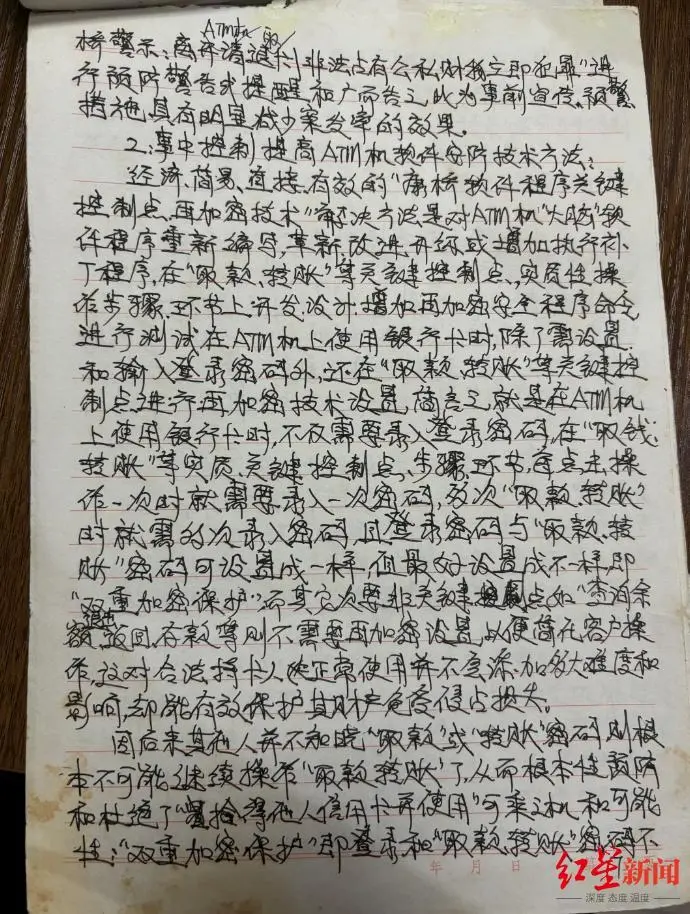 ATM机取
桥警示：离开请退卡，非法占有公私财物立即犯罪"进
行预防警告或提醒和广而告之，此为事前宣传、预警
措施，具有明显减少案发率的效果。
2.事中控制 提高ATM机软件安防技术方法：
经济、简易、直接、有效的"康桥软件程序关键
控制点、再加密技术"解决方法是对ATM机"大脑"软
件程序重新编写，革新改进升级或增加执行补
丁程序，在"取款、转账"等关键控制点、实质性操
作步骤、环节上开发、设计、增加再加密安全程序命令
进行测试在ATM机上使用银行卡时，除了需设置
和输入登录密码外，还在"取款、转账"等关键控
制点进行再加密技术设置，简言之就是在ATM机
上使用银行卡时，不仅需要录入登录密码，在"取钱、
转账"等实质、关键控制点、步骤、环节，每点击、操
作一次时就需要录入一次密码，多次"取款、转账"
时就需多次录入密码，且登录密码与"取款、转
账"密码可设置成一样，但最好设置成不一样，即
"双重加密保护"，而其它次要非关键点如"查询余
额、退出、返回、存款等则不需要再加密设置，以便简化客户操
作，这对合法持卡人的正常使用并不会添加多大难度和
影响，却能有效保护其财产免受侵占损失。
因后来其他人并不知晓"取款"或"转账"密码，则根
本不可能继续操作"取款、转账"了，从而根本性预防
和杜绝了"捡拾得他人信用卡并使用"可乘之机和可能
性；"双重加密保护"即登录和"取款、转账"密码不
年 月 日
红星新闻
深度 态度 温度